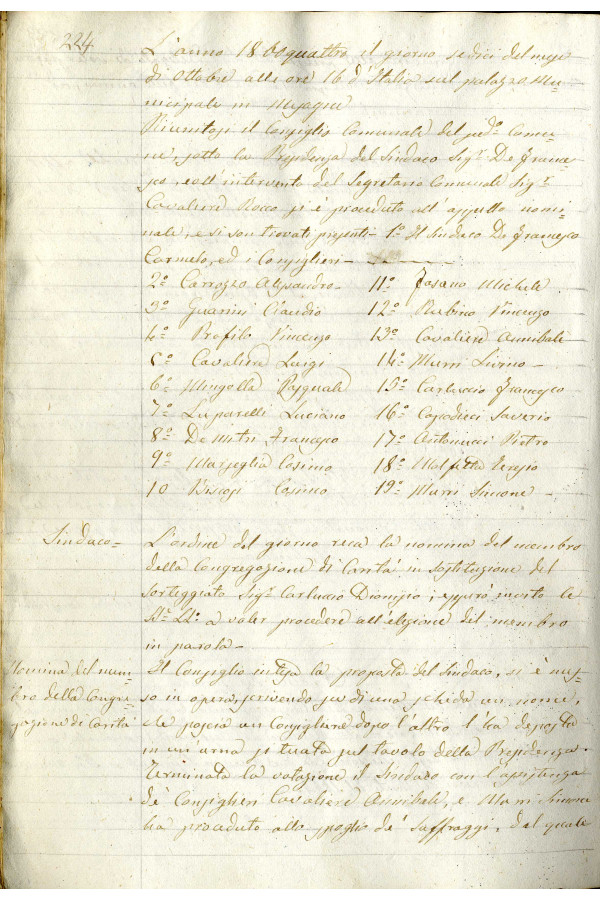 224
L'anno 1860quattro il giorno sedici del mese
di Ottobre alle ore 16 d'Italia sul palazzo Mu-
nicipale in Mesagne
Riunitosi il Consiglio Comunale del sudo Comu-
ne, sotto la Presidenza del Sindaco Sigr De France-
sco, coll'intervento del Segretario Comunale Sigr
Cavaliere Rocco si è proceduto all'appello nomi-
nale, e si son trovati presenti - 1o Il Sindaco De Francesco
Carmelo, ed i Consiglieri -
2o Carrozzo Alessandro -
3o Guarini Claudio
4o Profilo Vincenzo
5o Cavaliere Luigi
6o Mingolla Pasquale
7o Luparelli Luciano
8o De Mitri Francesco
9o Marseglia Cosimo
10 Biscosi Cosimo
11o Fasano Michele
12o Rubino Vincenzo
13o Cavaliere Annibale -
14o Murri Livino -
15o Carluccio Francesco
16o Capodieci Saverio
17o Antonucci Pietro
18o Malfatta Teresio
19o Murri Simone -
Sindaco -
L'ordine del giorno reca la nomina del membro
della Congregazione di Carità in sostituzione del
sorteggiato Sigr Carluccio Dionisio; epperò invito le
SS. LL. a voler procedere all'elezione del membro
in parola -
Nomina del mem-
bro della Congre-
gazione di Carità
Il Consiglio intesa la proposta del Sindaco, si è mes-
so in opera, scrivendo su di una scheda un nome,
che poscia un Consigliere dopo l'altro l'ha deposta
in un'urna situata sul tavolo della Presidenza.
Terminata la votazione il Sindaco con l'assistenza
de' Consiglieri Cavaliere Annibale, e Murri Simone
ha proceduto allo spoglio de' suffraggi, dal quale